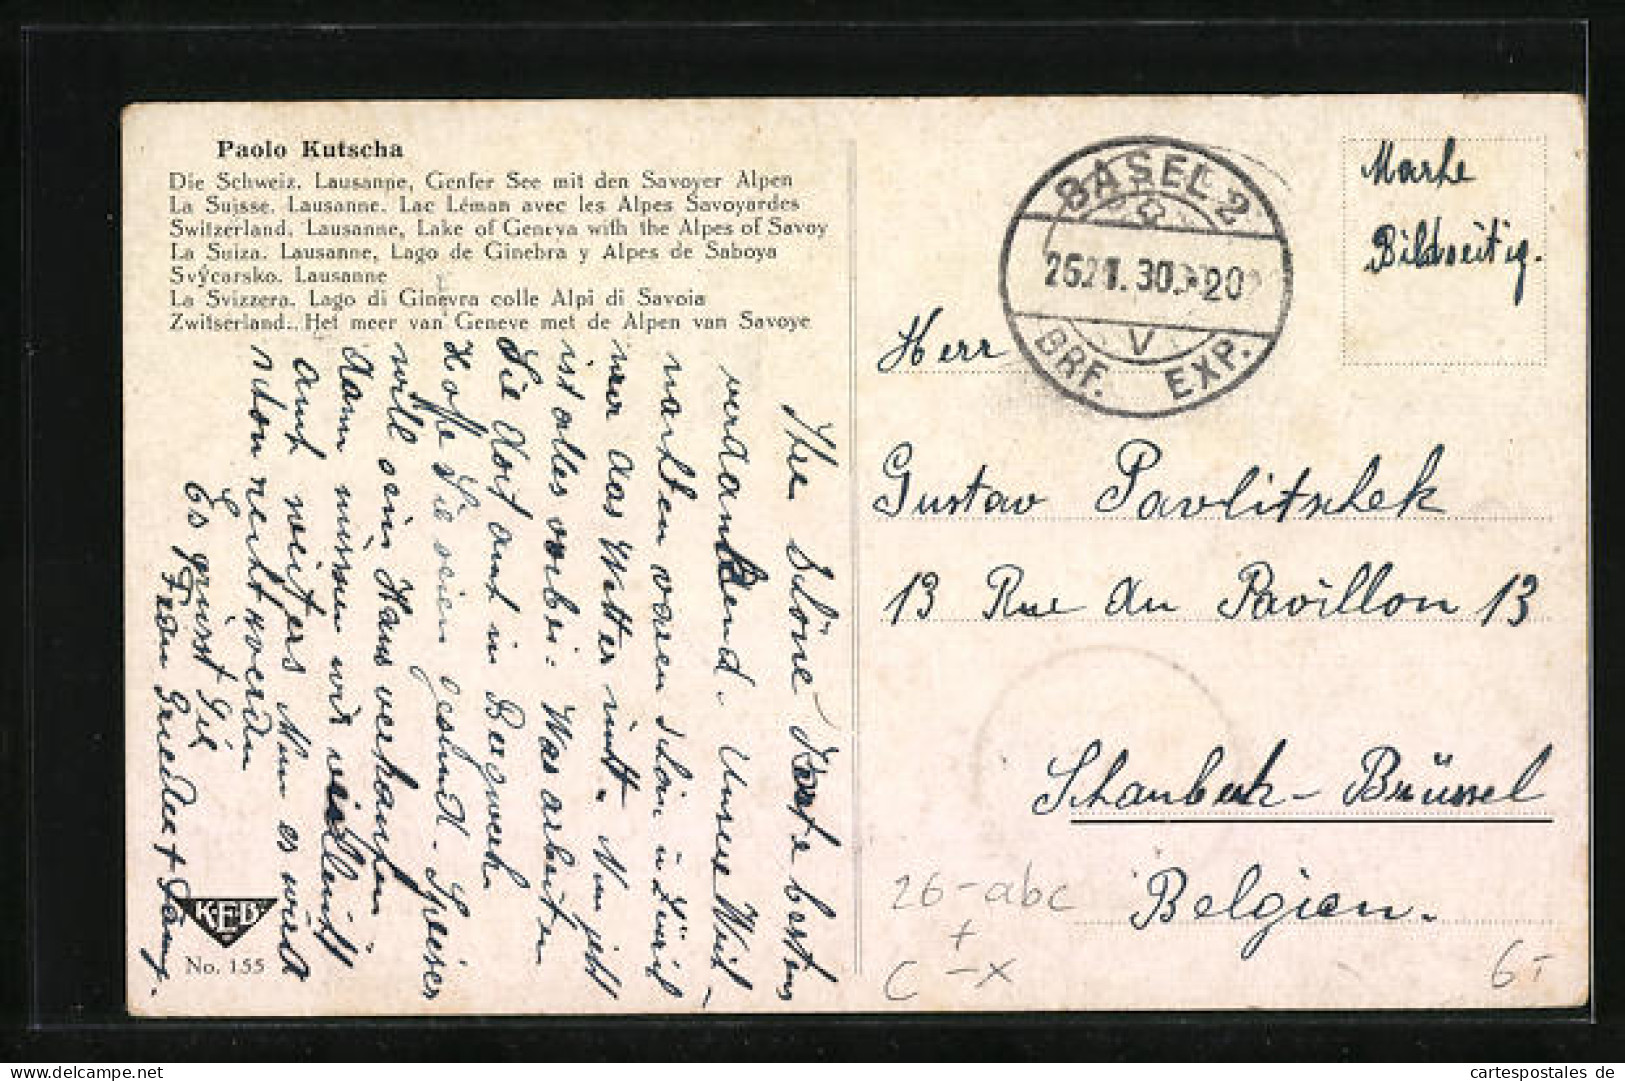 Paolo Kutscha
Die Schweiz. Lausanne, Genfer See mit den Savoyer Alpen
La Suisse. Lausanne. Lac Léman avec les Alpes Savoyardes
Switzerland. Lausanne, Lake of Geneva with the Alpes of Savoy
La Suiza. Lausanne, Lago de Ginebra y Alpes de Saboya
Svýcarsko. Lausanne
La Svizzera. Lago di Ginevra colle Alpi di Savoia
Zwitserland.. Het meer van Geneve met de Alpen van Savoye
Ihre schöne Karte bestens
verdankend. Unsere
warten waren schön in Zürich
nur das Wetter nicht. Nun jetzt
ist alles vorbei. Was arbeiten
Sie dort auch in Bergwerk
Hoffe Sie seien gesund. Speiser
will sein Haus verkaufen
dann müssen wir vielleicht
auch weiters Nun es wird
schon recht werden
Es grüsst Sie
Fam.
KFB
No. 155
BASEL 2
30. 20
V
BRF. EXP.
Marke
Bildseitig.
Herr
Gustav Pavlitschek
13 Rue du Pavillon 13
Schaubeck-Brüssel
Belgien.
26-abc
+
C -x
6-
cartespostales de